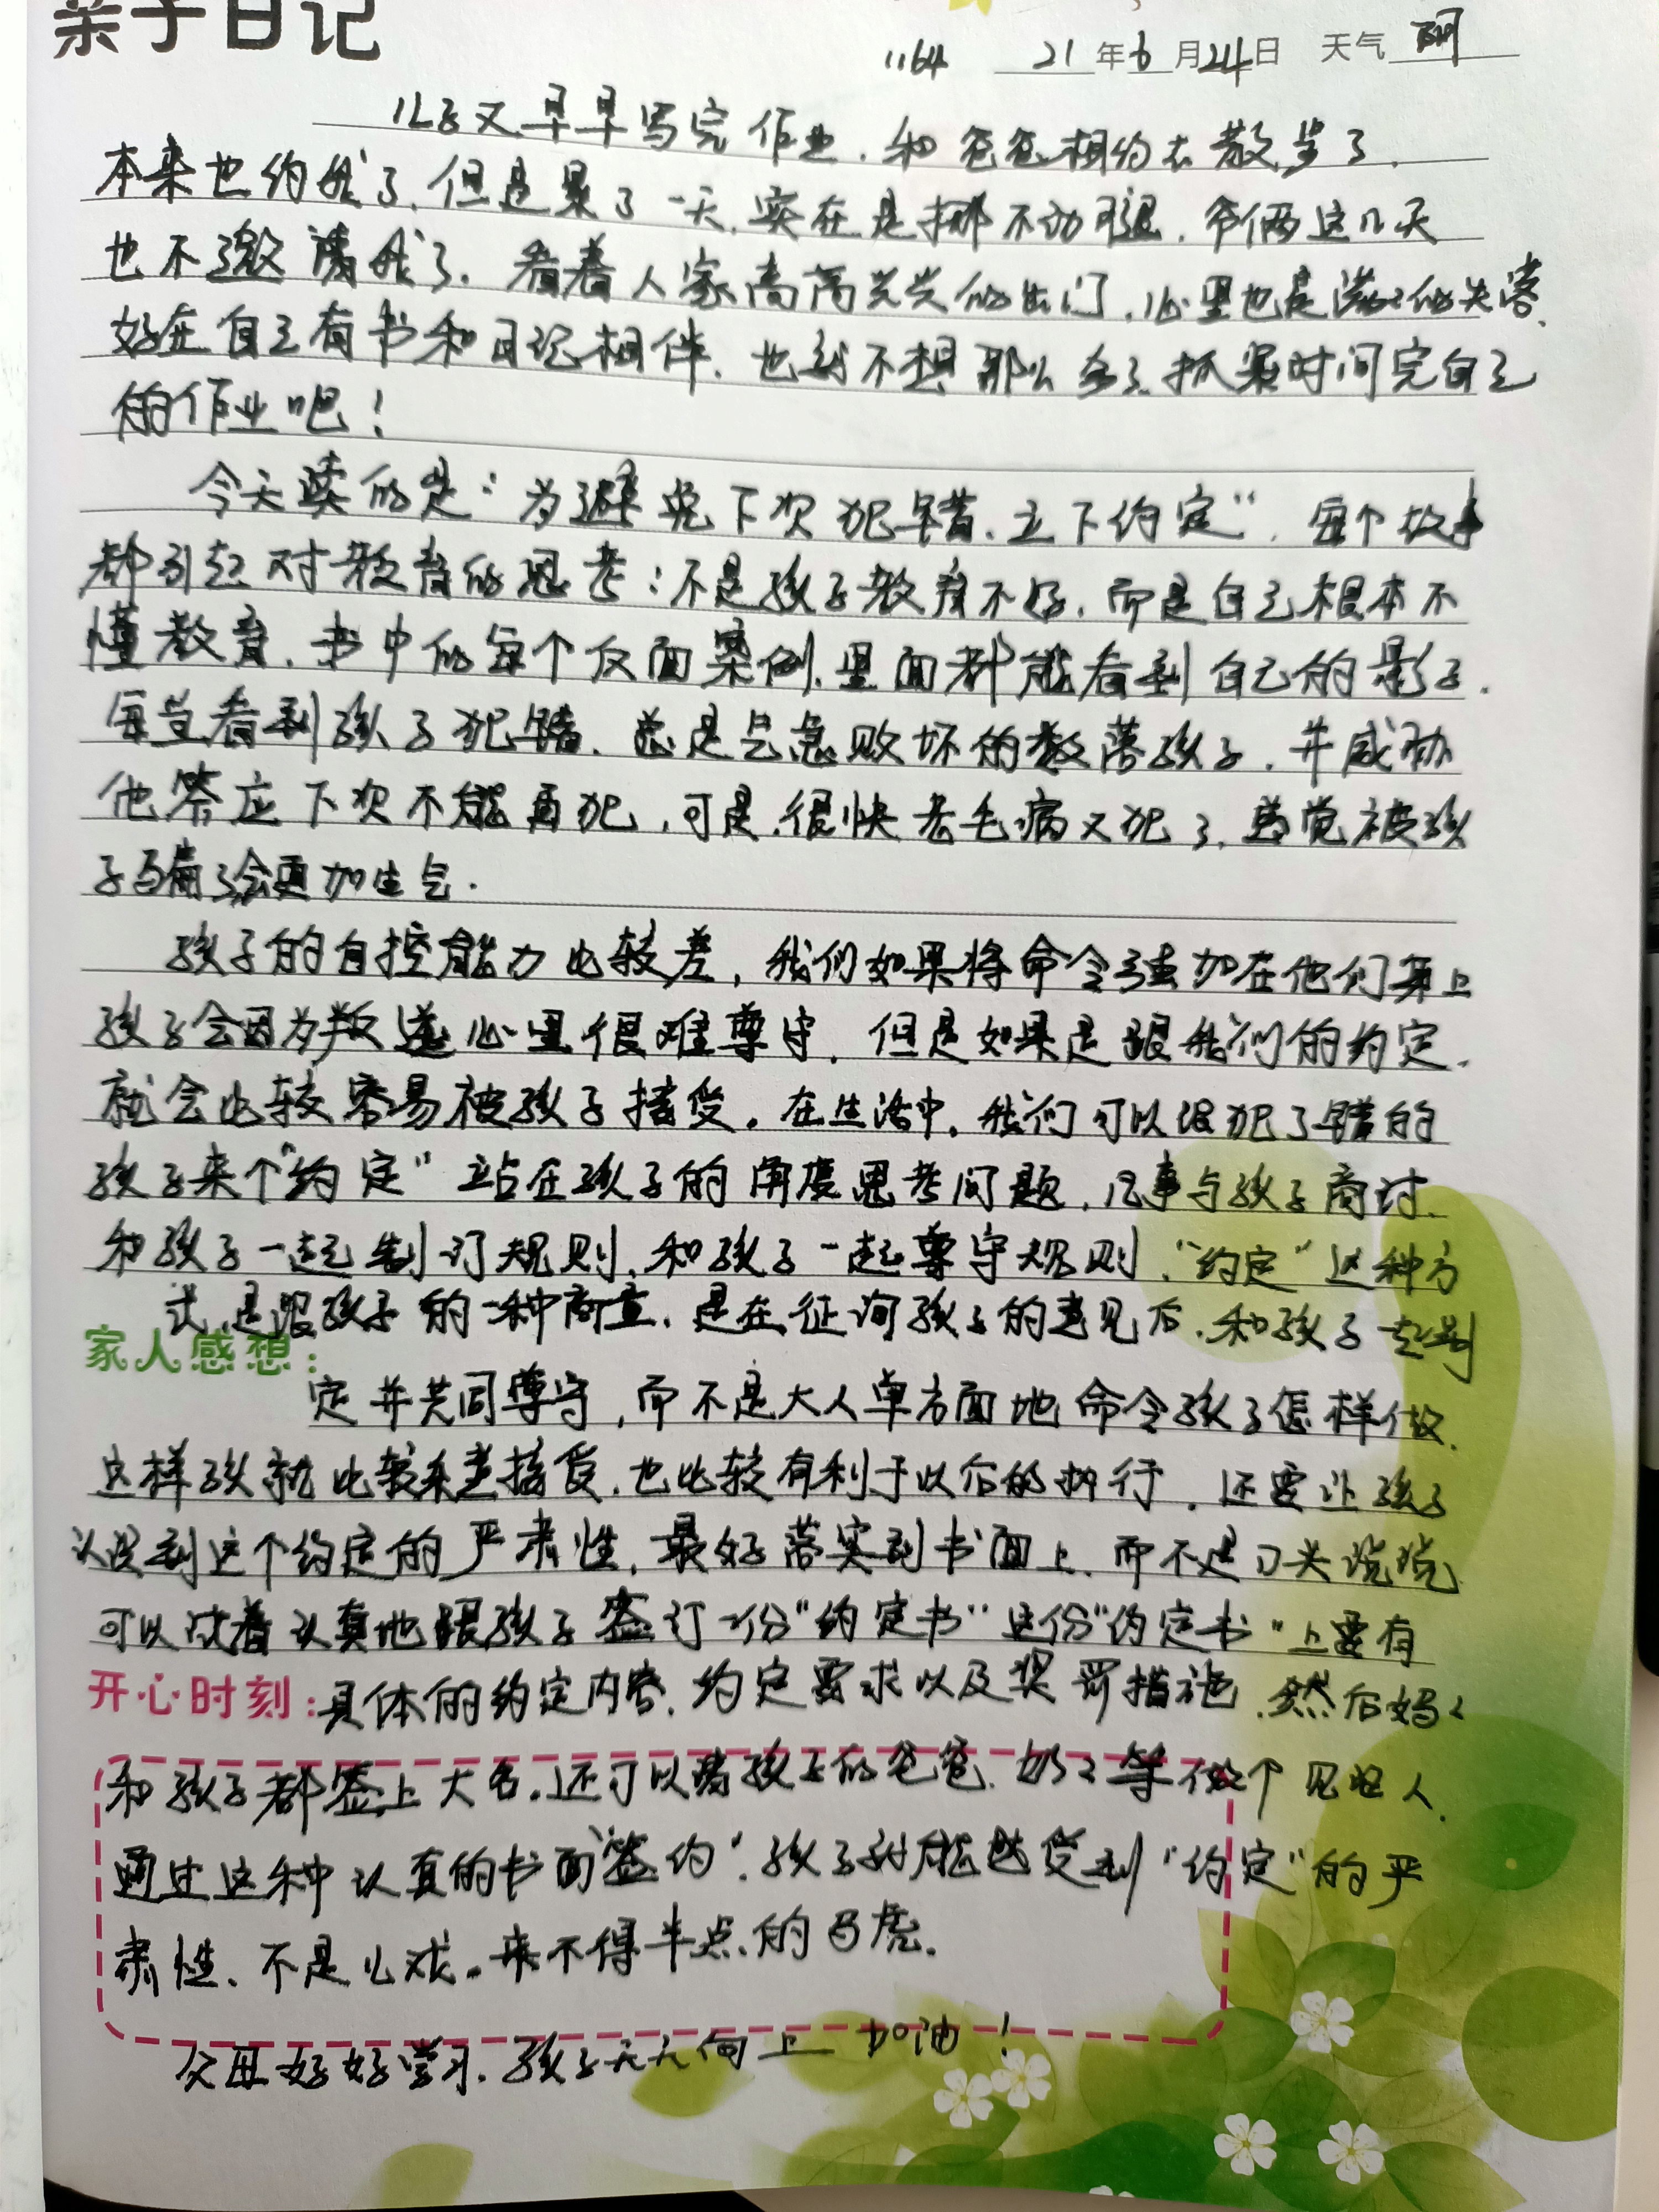 亲子日记
1164 21年6月24日 天气 阴
儿子又早早写完作业，和爸爸相约去散步了，
本来也约我了，但是累了一天，实在是挪不动腿，爷俩这几天
也不邀请我了，看着人家高高兴兴的出门，心里也是满满的失落，
好在自己有书和日记相伴，也就不想那么多了，抓紧时间完自己
的作业吧！
今天读的是：“为避免下次犯错，立下约定”，每个故事
都引起对教育的思考：不是孩子教育不好，而是自己根本不
懂教育，书中的每个反面案例，里面都能看到自己的影子，
每当看到孩子犯错，总是气急败坏的数落孩子，并威胁
他答应下次不能再犯，可是，很快老毛病又犯了，感觉被孩
子骗了会更加生气.
孩子的自控能力比较差，我们如果将命令强加在他们身上
孩子会因为叛逆心里很难尊守，但是如果是跟我们的约定，
就会比较容易被孩子接受。在生活中，我们可以跟犯了错的
孩子来个“约定”站在孩子的角度思考问题，凡事与孩子商讨，
和孩子一起制订规则，和孩子一起尊守规则，“约定”这种方
式，是跟孩子的一种商量，是在征询孩子的意见后，和孩子一起制
家人感想：
定并共同尊守，而不是大人单方面地命令孩子怎样做，
这样孩就比较乐意接受，也比较有利于以后的执行，还要让孩子
认识到这个约定的严肃性，最好落实到书面上，而不是口头说说
可以试着认真地跟孩子签订一份“约定书”这份“约定书”上要有
开心时刻：具体的约定内容，约定要求以及奖罚措施，然后妈妈
和孩子都签上大名，还可以请孩子的爸爸、奶奶等做个见证人，
通过这种认真的书面“签约”，孩子就能感受到“约定”的严
肃性，不是儿戏，来不得半点的马虎。
父母好好学习，孩子天天向上 加油！